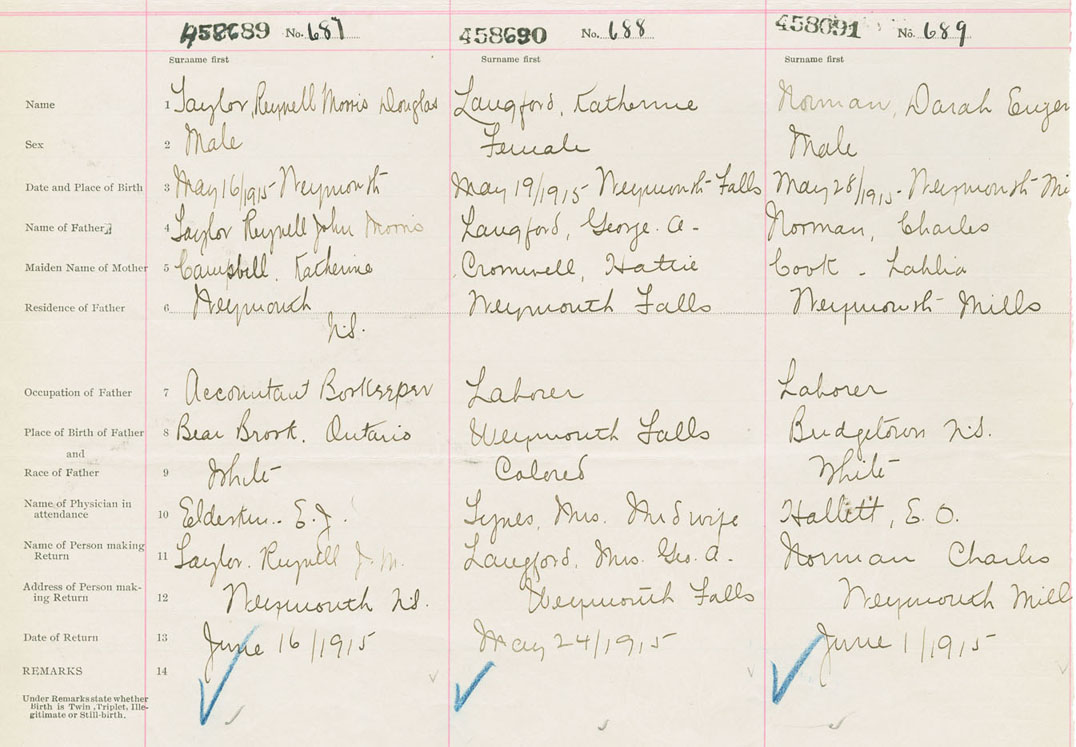 458689 No. 687 458690 No. 688 458091 No. 689
Surname first Surname first Surname first
Name 1 Taylor, Reynell Morris Douglas Langford, Katherine Norman, Darah Eugen
Sex 2 Male Female Male
Date and Place of Birth 3 May 16/1915 Weymouth May 19/1915 Weymouth Falls May 28/1915 - Weymouth Mi
Name of Father 4 Taylor Reynell John Morris Langford, George. A - Norman, Charles
Maiden Name of Mother 5 Campbell, Katherine Cromwell, Hattie Cook - Lahlia
Residence of Father 6 Weymouth Weymouth Falls Weymouth Mills
N.S.
Occupation of Father 7 Accountant Bookkeeper Laborer Laborer
Place of Birth of Father 8 Bear Brook, Ontario Weymouth Falls Bridgetown N.S.
and
Race of Father 9 White Colored White
Name of Physician in
attendance 10 Elderkin - E.J. Synes, Mrs. Midwife Hallett, E. O.
Name of Person making
Return 11 Taylor. Reynell J. M. Langford, Mrs. Geo. A. Norman Charles
Address of Person mak-
ing Return 12 Weymouth N.S. Weymouth Falls Weymouth Mill
Date of Return 13 June 16/1915 May 24/1915 June 1/1915
REMARKS 14
Under Remarks state whether
Birth is Twin, Triplet, Ille-
gitimate or Still-birth.